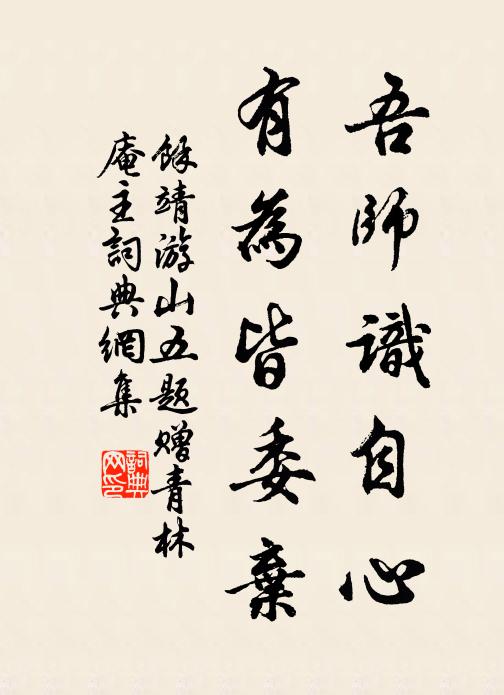 吾師識自心
有為皆委棄
餘靖游山五題贈青林
庵主詞典網集
詞典网印